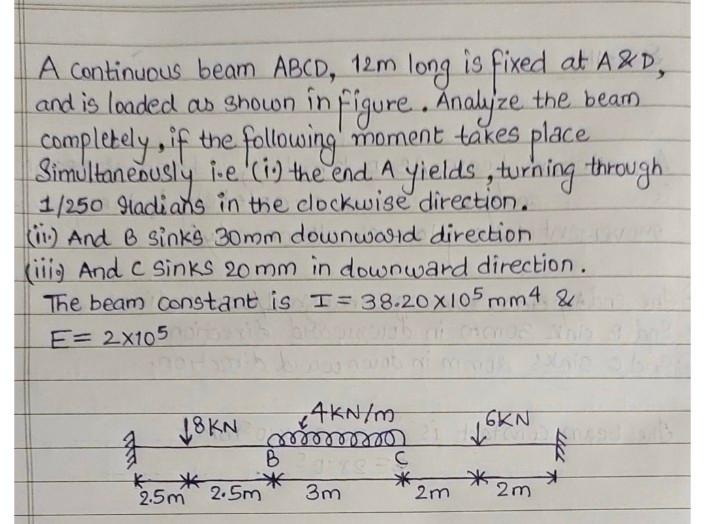 A continuous beam ABCD, 12m long is fixed at A & D,
and is loaded as shown in figure. Analyze the beam
completely, if the following moment takes place
Simultaneously i.e (i.) the end A yields, turning through
1/250 radians in the clockwise direction.
(ii.) And B sinks 30mm downward direction
(iii) And C sinks 20mm in downward direction.
The beam constant is I = 38.20×10⁵ mm⁴ &
E = 2×10⁵
↓8KN 4KN/m ↓6KN
B C
2.5m 2.5m 3m 2m 2m